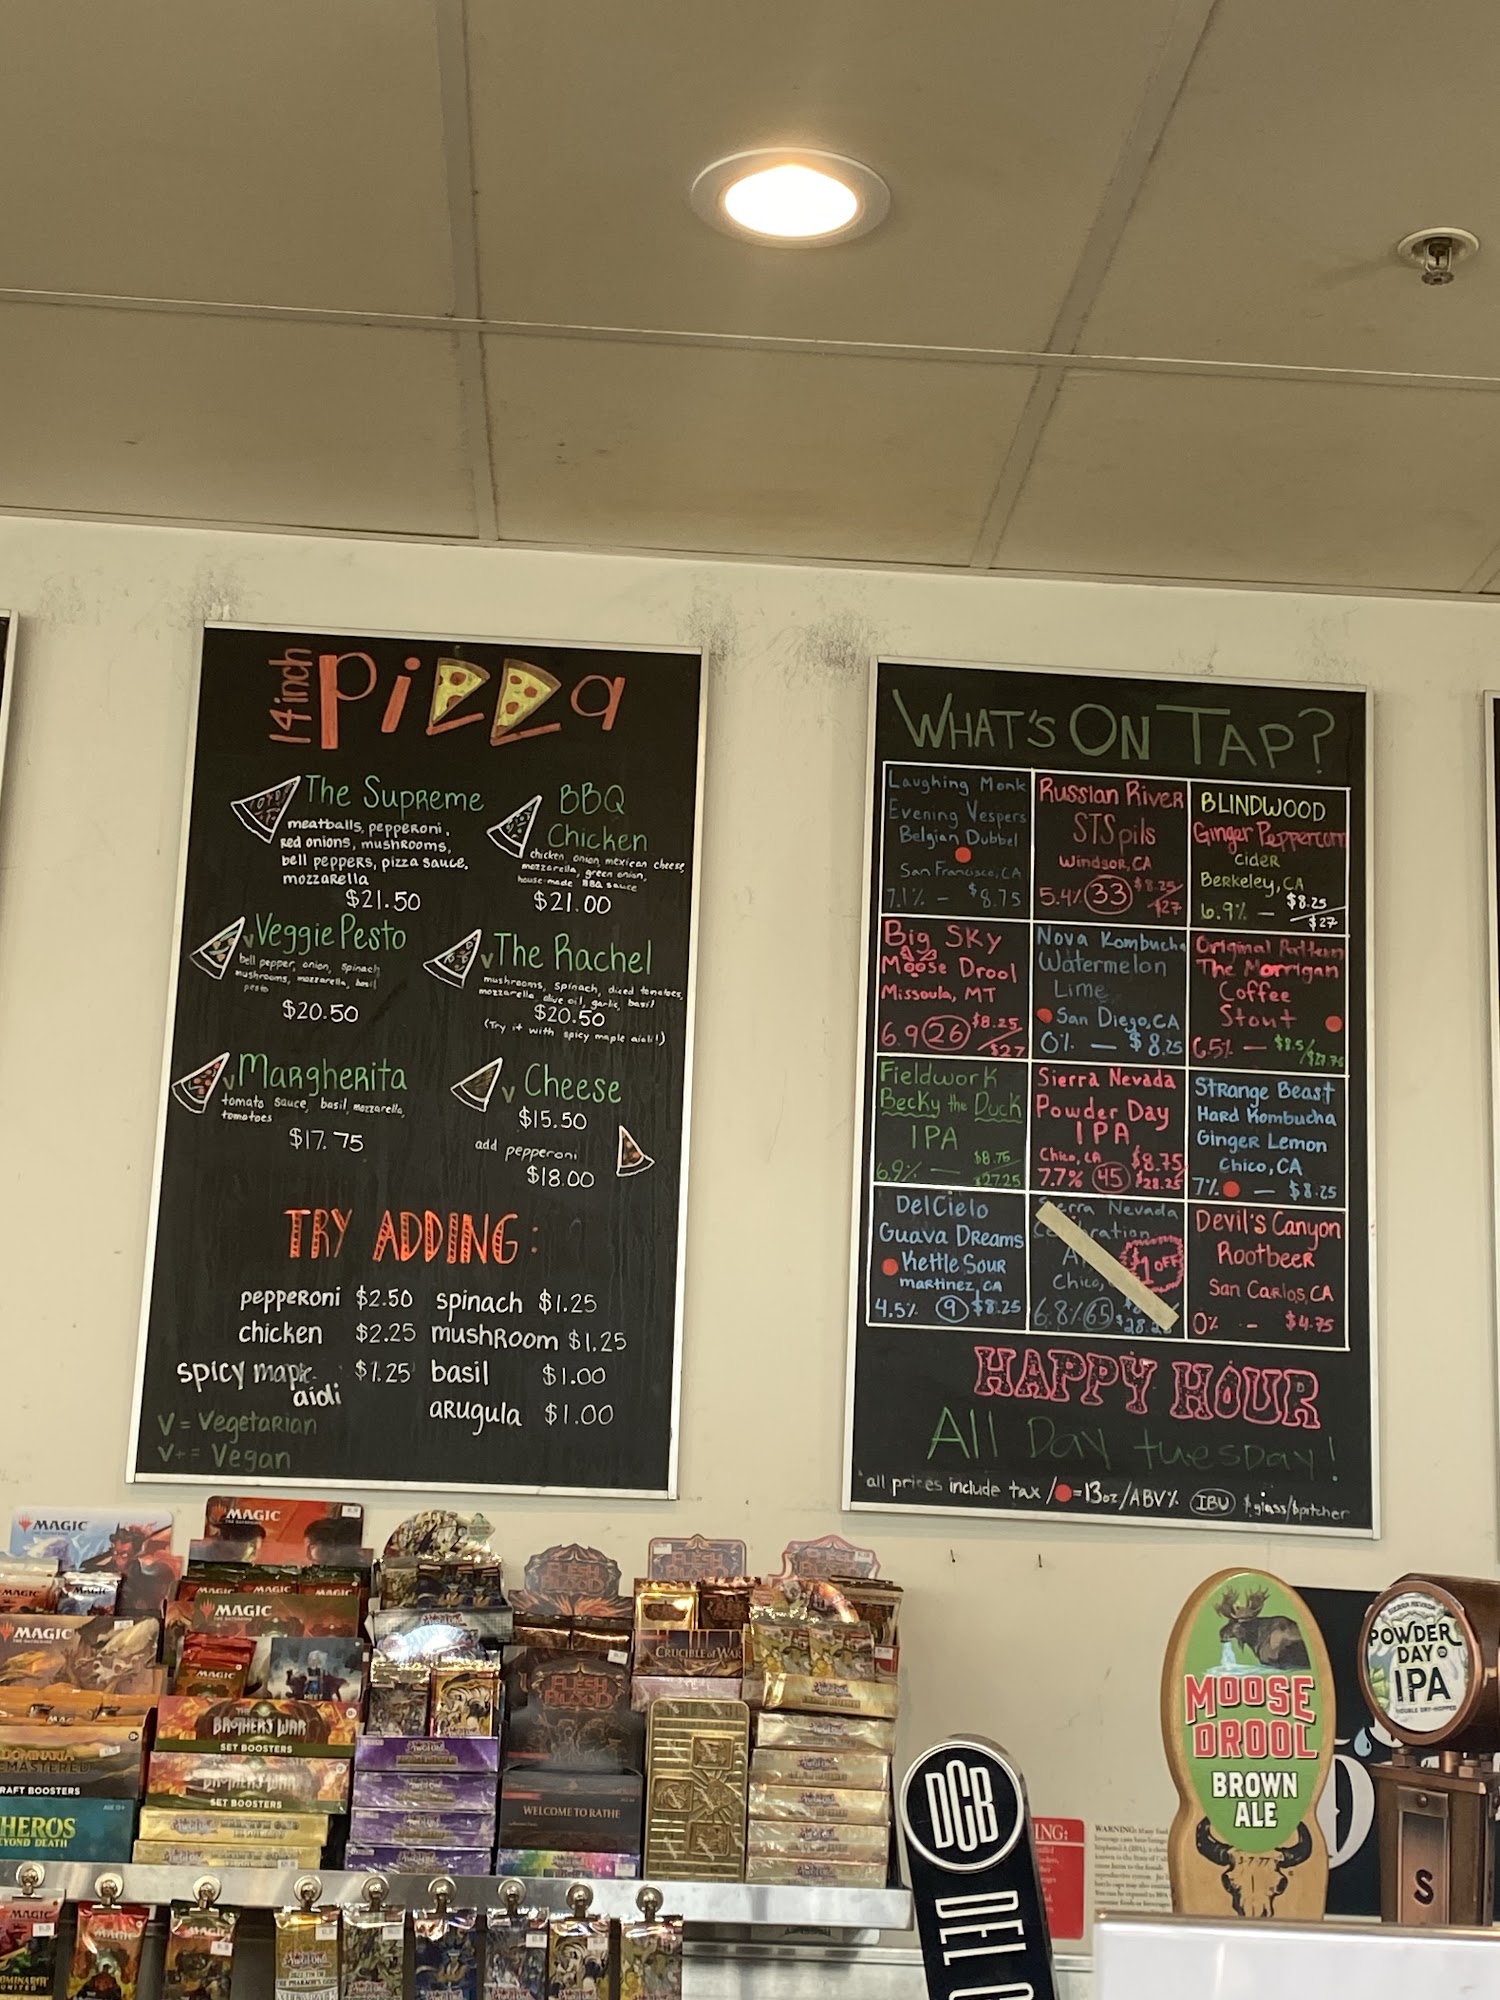 14 inch Pizza
The Supreme
meatballs, pepperoni,
red onions, mushrooms,
bell peppers, pizza sauce.
mozzarella
$21.50
BBQ
Chicken
chicken, onion, mexican cheese,
mozzarella, green onion,
house-made BBQ sauce
$21.00
v Veggie Pesto
bell pepper, onion, spinach
mushrooms, mozzarella, basil
pesto
$20.50
v The Rachel
mushrooms, spinach, diced tomatoes,
mozzarella, olive oil, garlic, basil
$20.50
(Try it with spicy maple aioli!)
v Margherita
tomato sauce, basil, mozzarella,
tomatoes
$17.75
v Cheese
$15.50
add pepperoni
$18.00
TRY ADDING:
pepperoni $2.50
chicken $2.25
spicy maple
aioli $1.25
spinach $1.25
mushroom $1.25
basil $1.00
arugula $1.00
V = Vegetarian
V+ = Vegan
WHAT'S ON TAP?
Laughing Monk
Evening Vespers
Belgian Dubbel
San Francisco, CA
7.1% - $8.75
Russian River
STS pils
Windsor, CA
5.4% 33 $8.25/$27
BLINDWOOD
Ginger Peppercorn
Cider
Berkeley, CA
6.9% - $8.25/$27
Big Sky
Moose Drool
Missoula, MT
6.9 26 $8.25/$27
Nova Kombucha
Watermelon
Lime
San Diego, CA
0% - $8.25
Original Pattern
The Morrigan
Coffee
Stout
6.5% - $8.5/$27.75
Fieldwork
Becky the Duck
IPA
6.9% - $8.75/$27.25
Sierra Nevada
Powder Day
IPA
Chico, CA $8.75/$28.25
7.7% 45
Strange Beast
Hard Kombucha
Ginger Lemon
Chico, CA
7% - $8.25
Del Cielo
Guava Dreams
Kettle Sour
martinez, CA
4.5% 9 $8.25
erra Nevada
ration
$1 OFF
Chico,
6.8% 65
Devil's Canyon
Rootbeer
San Carlos, CA
0% - $4.75
HAPPY HOUR
All Day tuesday!
*all prices include tax / = 13oz / ABV% IBU $glass/$pitcher
MAGIC
MAGIC
MAGIC
MAGIC
MAGIC
MAGIC
MAGIC
MAGIC
MAGIC
THE BROTHERS' WAR
SET BOOSTERS
SET BOOSTERS
DOMINARIA
REMASTERED
DRAFT BOOSTERS
HEROS
BEYOND DEATH
FLESH AND BLOOD
FLESH AND BLOOD
CRUCIBLE of WAR
FLESH AND BLOOD
WELCOME TO RATHE
MAGIC
MAGIC
MAGIC
DCB
DEL C
ING:
WARNING:
MOOSE
DROOL
BROWN
ALE
SIERRA NEVADA
POWDER
DAY
IPA
S